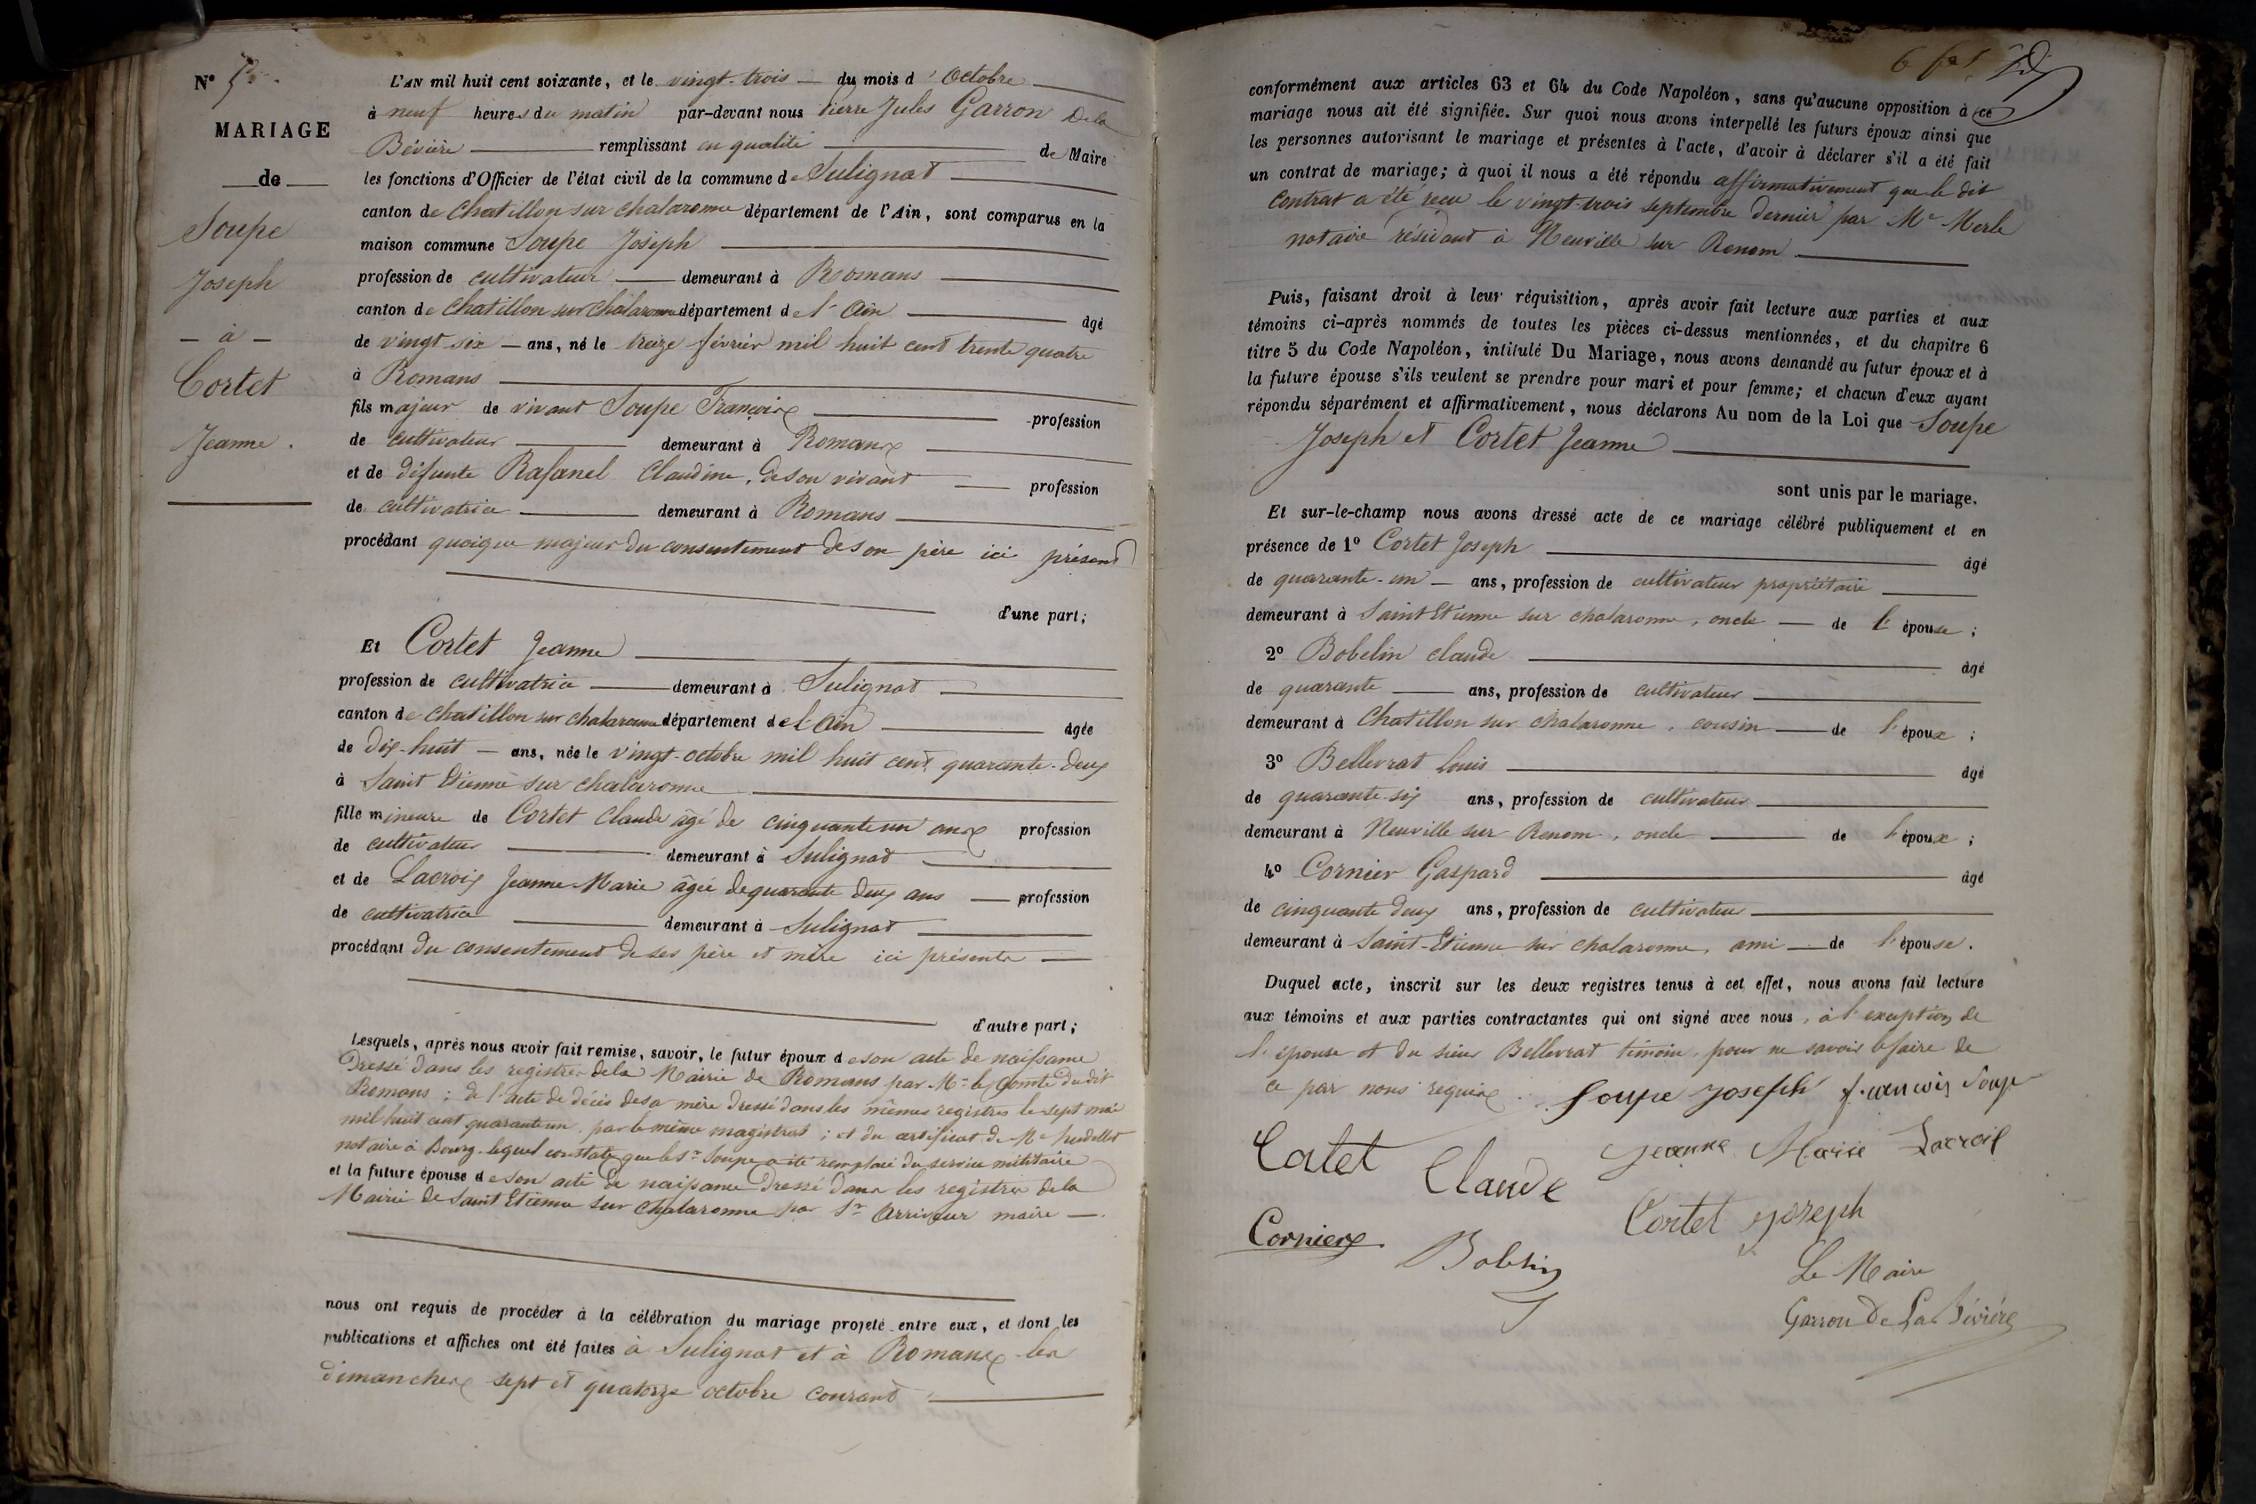 N° 5
MARIAGE
de
Soupe
Joseph
- à -
Cortet
Jeanne.
L'AN mil huit cent soixante, et le vingt-trois du mois d'Octobre
à neuf heures du matin par-devant nous Pierre Jules Garron De la
Bévière remplissant en qualité de Maire
les fonctions d'Officier de l'état civil de la commune de Sulignat
canton de Chatillon sur chalaronne département de l'Ain, sont comparus en la
maison commune Soupe Joseph
profession de cultivateur demeurant à Romans
canton de Chatillon sur Chalaronne département de l'Ain âgé
de vingt six ans, né le treize février mil huit cent trente quatre
à Romans
fils majeur de vivant Soupe François profession
de cultivateur demeurant à Romans
et de défunte Rafanel Claudine, de son vivant profession
de cultivatrice demeurant à Romans
procédant quoique majeur du consentement de son père ici présent
d'une part;
Et Cortet Jeanne
profession de cultivatrice demeurant à Sulignat
canton de Chatillon sur chalaronne département de l'Ain âgée
de dix-huit ans, née le vingt-octobre mil huit cent quarante-deux
à Saint Etienne sur chalaronne
fille mineure de Cortet Claude âgé de cinquante un ans profession
de cultivateur demeurant à Sulignat
et de Lacroix Jeanne-Marie âgée de quarante deux ans profession
de cultivatrice demeurant à Sulignat
procédant du consentement de ses père et mère ici présents
d'autre part;
Lesquels, après nous avoir fait remise, savoir, le futur époux de son acte de naissance
Dressé dans les registres de la Mairie de Romans par Mr le Comte du dit
Romans; de l'acte de décès de sa mère dressé dans les mêmes registres le sept mai
mil huit cent quarante un par le même magistrat; et du certificat de Me
notaire à Bourg lequel constate que le Sr Soupe a été remplacé du service militaire
et la future épouse de son acte de naissance Dressé dans les registres de la
Mairie de Saint Etienne sur Chalaronne par Sr Arriveur maire
nous ont requis de procéder à la célébration du mariage projeté entre eux, et dont les
publications et affiches ont été faites à Sulignat et à Romans les
dimanches sept et quatorze octobre courant
conformément aux articles 63 et 64 du Code Napoléon, sans qu'aucune opposition à ce
mariage nous ait été signifiée. Sur quoi nous avons interpellé les futurs époux ainsi que
les personnes autorisant le mariage et présentes à l'acte, d'avoir à déclarer s'il a été fait
un contrat de mariage; à quoi il nous a été répondu affirmativement que le dit
Contrat a été reçu le vingt-trois septembre dernier par Me Merle
notaire résidant à Neuville sur Renom
Puis, faisant droit à leur réquisition, après avoir fait lecture aux parties et aux
témoins ci-après nommés de toutes les pièces ci-dessus mentionnées, et du chapitre 6
titre 5 du Code Napoléon, intitulé Du Mariage, nous avons demandé au futur époux et à
la future épouse s'ils veulent se prendre pour mari et pour femme; et chacun d'eux ayant
répondu séparément et affirmativement, nous déclarons Au nom de la Loi que Soupe
Joseph et Cortet Jeanne
sont unis par le mariage.
Et sur-le-champ nous avons dressé acte de ce mariage célébré publiquement et en
présence de 1° Cortet Joseph âgé
de quarante-un ans, profession de cultivateur propriétaire
demeurant à Saint Etienne sur chalaronne, oncle de l'épouse;
2° Bobelin claude âgé
de quarante ans, profession de cultivateur
demeurant à Chatillon sur chalaronne, cousin de l'époux;
3° Bellevrat Louis âgé
de quarante-six ans, profession de cultivateur
demeurant à Neuville sur Renom, oncle de l'époux;
4° Cornier Gaspard âgé
de cinquante deux ans, profession de cultivateur
demeurant à Saint-Etienne sur chalaronne, ami de l'épouse.
Duquel acte, inscrit sur les deux registres tenus à cet effet, nous avons fait lecture
aux témoins et aux parties contractantes qui ont signé avec nous, à l'exception de
l'épouse et du sieur Bellevrat témoin, pour ne savoir le faire de
ce par nous requis. Soupe Joseph françois Soupe
Catet Claude Jeanne Marie Lacroix
Cornier Bobelin Cortet joseph
Le Maire
Garron De La Bévière